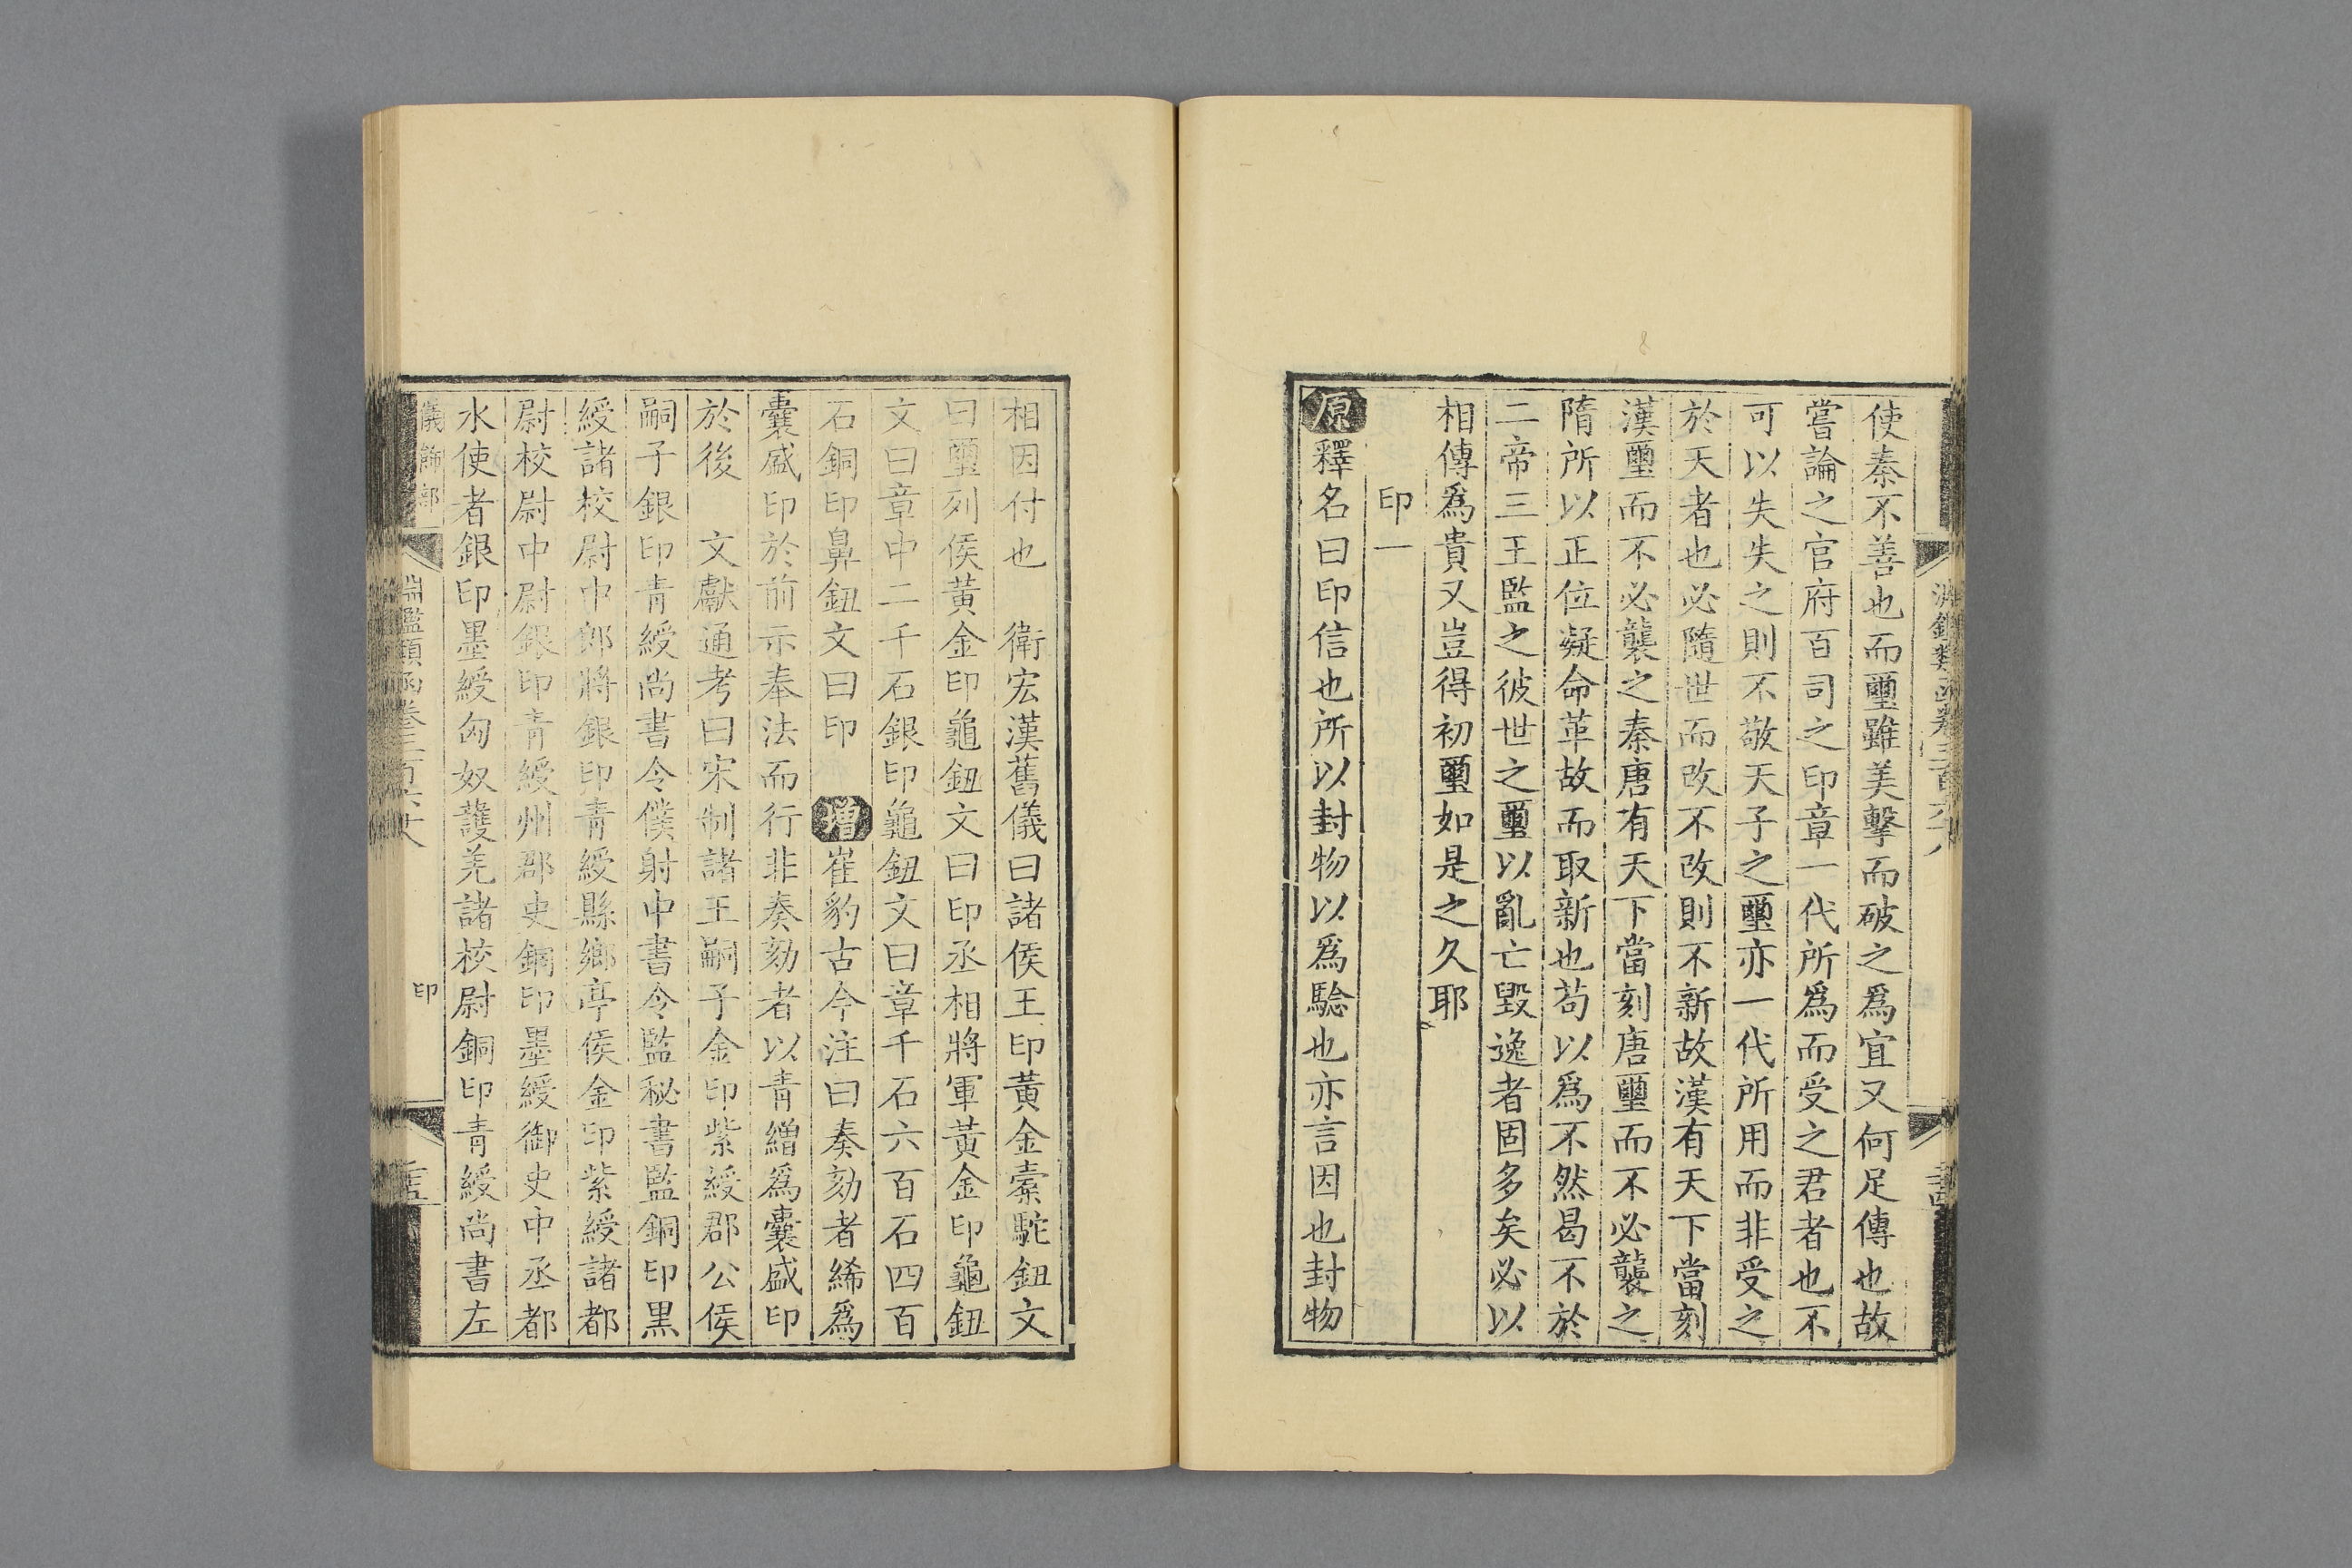 使秦不善也而璽雖美擊而破之爲宜又何足傳也故
嘗論之官府百司之印章一代所爲而受之君者也不
可以失失之則不敬天子之璽亦一代所用而非受之
於天者也必隨世而改不改則不新故漢有天下當刻
漢璽而不必襲之秦唐有天下當刻唐璽而不必襲之
隋所以正位凝命革故而取新也苟以爲不然曷不於
二帝三王監之彼世之璽以亂亡毀逸者固多矣必以
相傳爲貴又豈得初璽如是之久耶
印一
原釋名曰印信也所以封物以爲驗也亦言因也封物
相因付也 衛宏漢舊儀曰諸侯王印黃金橐駝鈕文
曰璽列侯黃金印龜鈕文曰印丞相將軍黃金印龜鈕
文曰章中二千石銀印龜鈕文曰章千石六百石四百
石銅印鼻鈕文曰印 增崔豹古今注曰奏劾者綈爲
囊盛印於前示奉法而行非奏劾者以青繒爲囊盛印
於後 文獻通考曰宋制諸王嗣子金印紫綬郡公侯
嗣子銀印青綬尚書令僕射中書令監秘書監銅印黑
綬諸校尉中郎將銀印青綬縣鄉亭侯金印紫綬諸都
尉校尉中尉銀印青綬州郡吏銅印墨綬御史中丞都
水使者銀印墨綬匈奴護羌諸校尉銅印青綬尚書左
儀飾部 淵鑑類函卷三百六十八 印